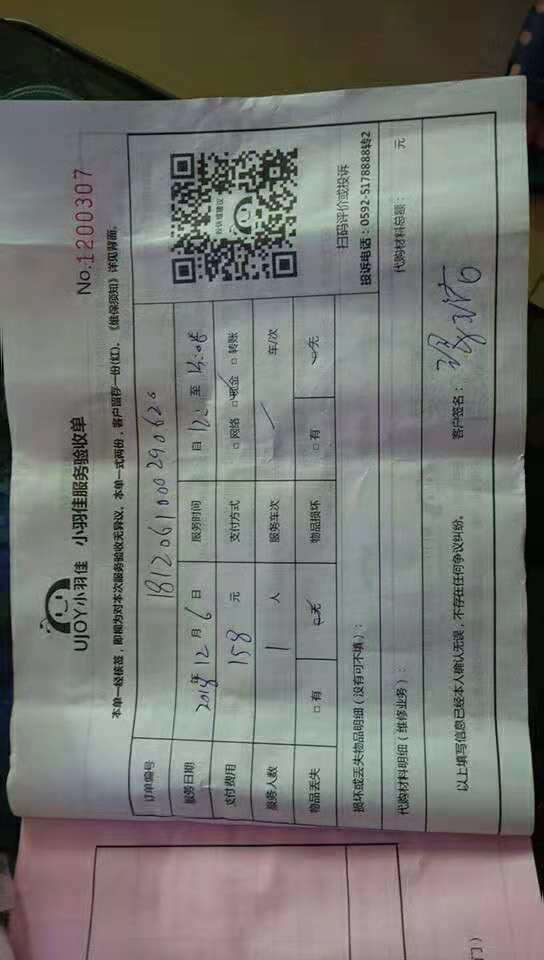 UJOY小羽佳 小羽佳服务验收单
No.1200307
本单一经核签，即视为对本次服务验收无异议。本单一式两份，客户留存一份(红)，《维保须知》详见背面。
订单编号 181206100029062
服务日期 2018年12月6日 服务时间 自 至 14:05
支付费用 158 元 支付方式 □网络 □现金 □转账
服务人数 1 人 服务车次 / 车/次
物品丢失 □有 □无 物品损坏 □有 □无
投诉或建议
扫码评价或投诉
投诉电话：0592-5178888转2
损坏或丢失物品明细（没有可不填）：
代购材料明细（维修业务）： 代购材料总额： 元
以上填写信息已经本人确认无误，不存在任何争议纠纷。
客户签名：